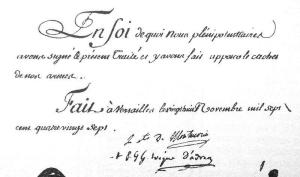 En foi de quoi Nous plénipotentiaires
avons signé le présent Traité et y avons fait apposer le cachet
de nos armes.
Fait à Versailles le vingt huit Novembre mil sept
cent quatre vingt sept.
le Cte D. Montmorin